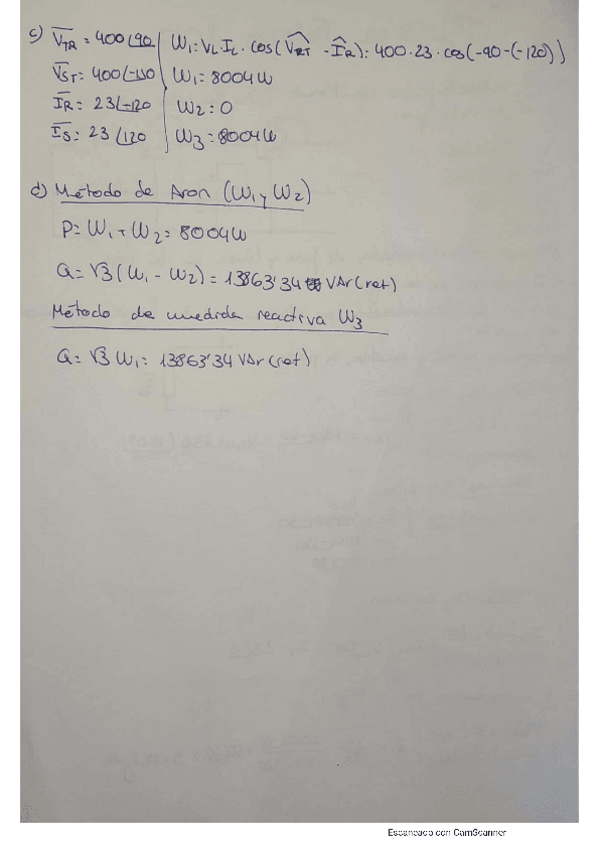 c) VTR = 400∠90 | W1 = VL·IL·cos(VRT - IR) = 400·23·cos(-90-(-120))
VST = 400∠-150 | W1 = 8004W
IR = 23∠-120 | W2 = 0
IS = 23∠120 | W3 = 8004W
d) Método de Aron (W1 y W2)
P = W1 + W2 = 8004W
Q = √3(W1 - W2) = 13863'34 VAr (ret)
Método de medida reactiva W3
Q = √3 W1 = 13863'34 VAr (ret)
Escaneado con CamScanner